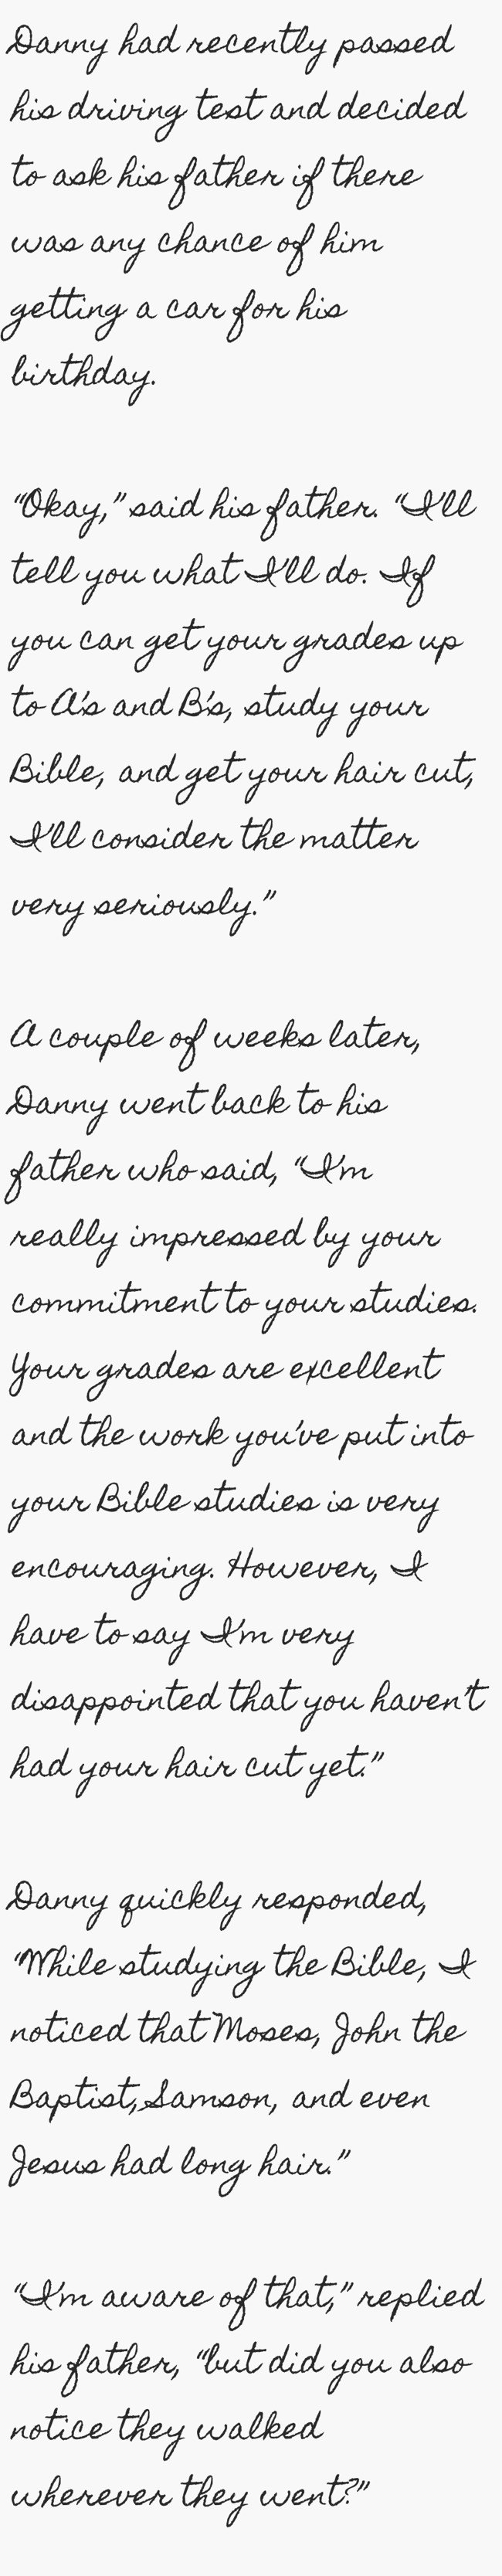 Danny had recently passed
his driving test and decided
to ask his father if there
was any chance of him
getting a car for his
birthday.

“Okay,” said his father. “I’ll
tell you what I’ll do. If
you can get your grades up
to A’s and B’s, study your
Bible, and get your hair cut,
I’ll consider the matter
very seriously.”

A couple of weeks later,
Danny went back to his
father who said, “I’m
really impressed by your
commitment to your studies.
Your grades are excellent
and the work you’ve put into
your Bible studies is very
encouraging. However, I
have to say I’m very
disappointed that you haven’t
had your hair cut yet.”

Danny quickly responded,
“While studying the Bible, I
noticed that Moses, John the
Baptist, Samson, and even
Jesus had long hair.”

“I’m aware of that,” replied
his father, “but did you also
notice they walked
wherever they went?”